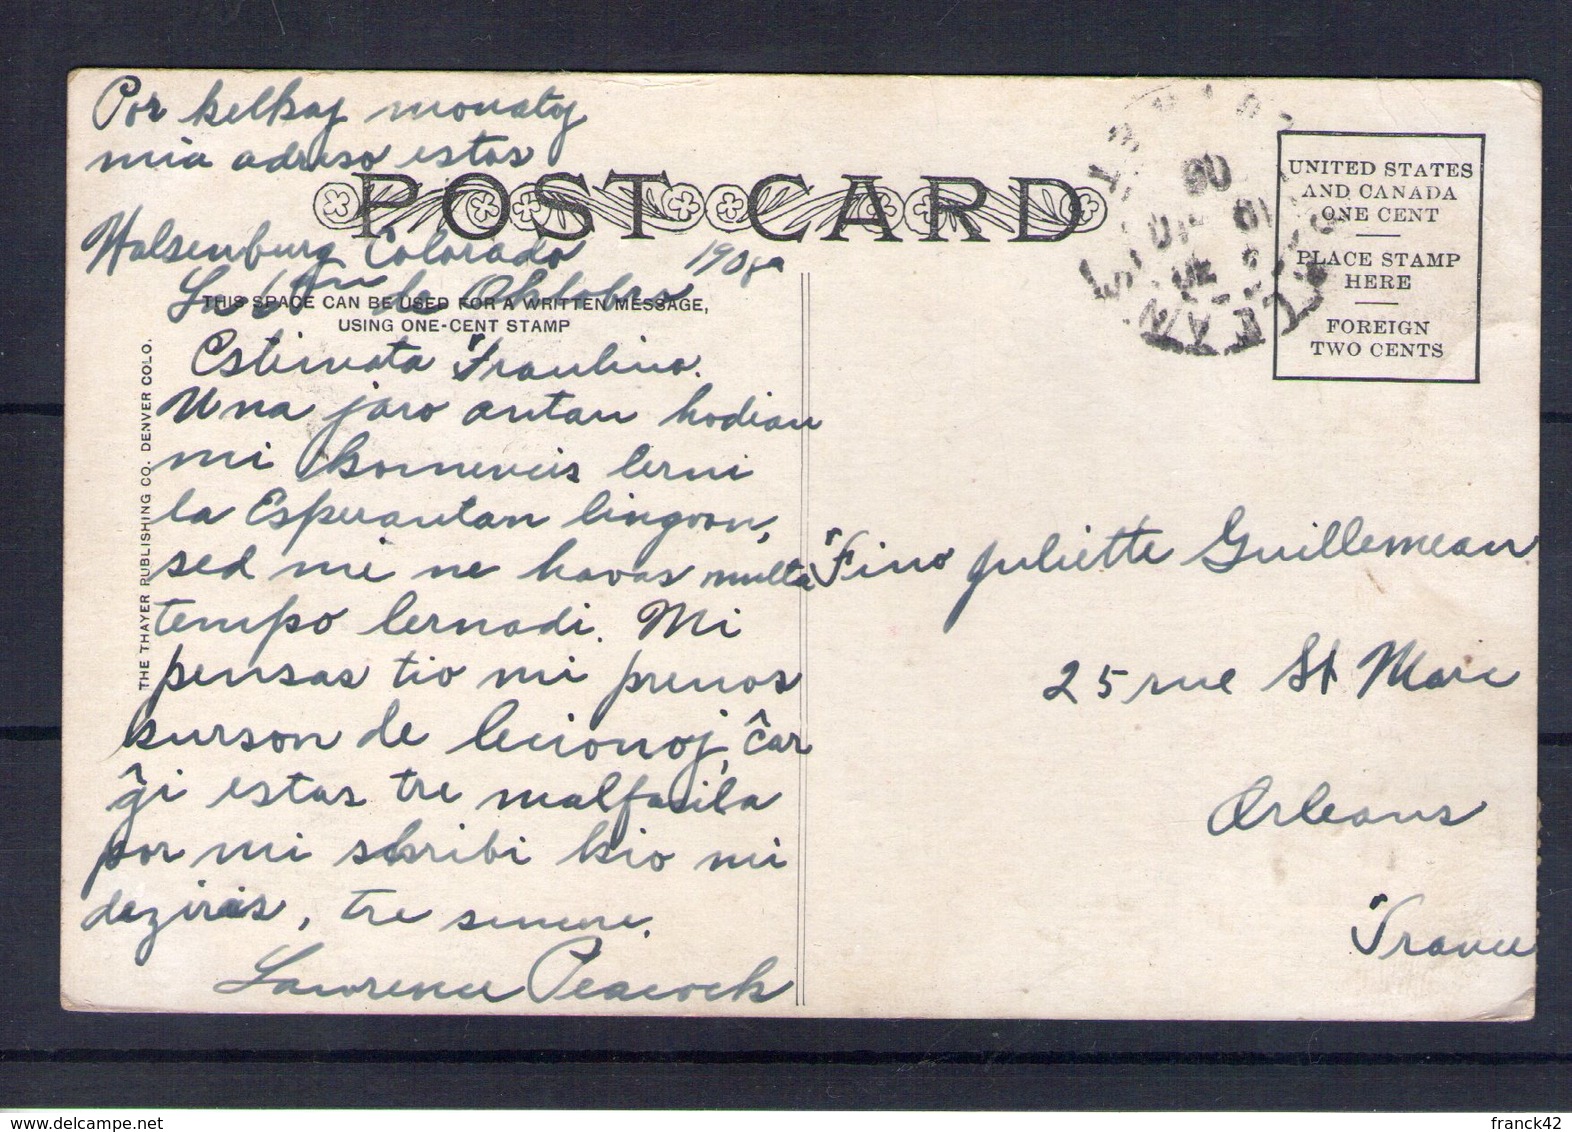 Por kelkaj monatoj
mia adreso estos
POST CARD
Walsenburg Colorado
1908a
La 1an de Oktobro
THIS SPACE CAN BE USED FOR A WRITTEN MESSAGE,
USING ONE-CENT STAMP
Estimata Fraulino.
Una jaro antau hodiau
mi komencis lerni
la Esperantan lingvon,
sed mi ne havas multa
tempo lernadi. Mi
pensas tio mi prenos
kurson de lecionoj, ĉar
ĝi estas tre malfasila
por mi skribi kio mi
deziras, tre sincere.
Lawrence Peacock
THE THAYER PUBLISHING CO. DENVER COLO.
UNITED STATES
AND CANADA
ONE CENT
PLACE STAMP
HERE
FOREIGN
TWO CENTS
Fino Juliette Guillemeau
25 rue St Marc
Orleans
France
delcampe.net
franck42